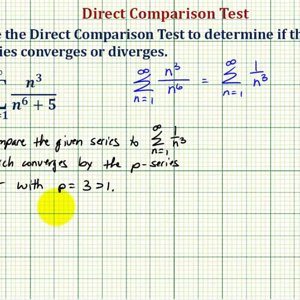 Direct Comparison Test
e the Direct Comparison Test to determine if th
ies converges or diverges.
n³ / (n⁶ + 5)
∞ ∑ n=1 n³/n⁶ = ∞ ∑ n=1 1/n³
mpare the given series to ∞ ∑ n=1 1/n³
ch converges by the p-series
with p = 3 > 1.